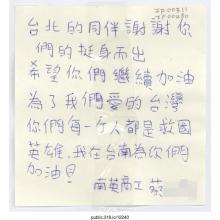 JP00311
JP00280
台北的同伴謝謝你
們的挺身而出
希望你們繼續加油
為了我們愛的台灣
你們每一個人都是救國
英雄,我在台南為你們
加油!
南英商工 蔡
public.318.io/12240